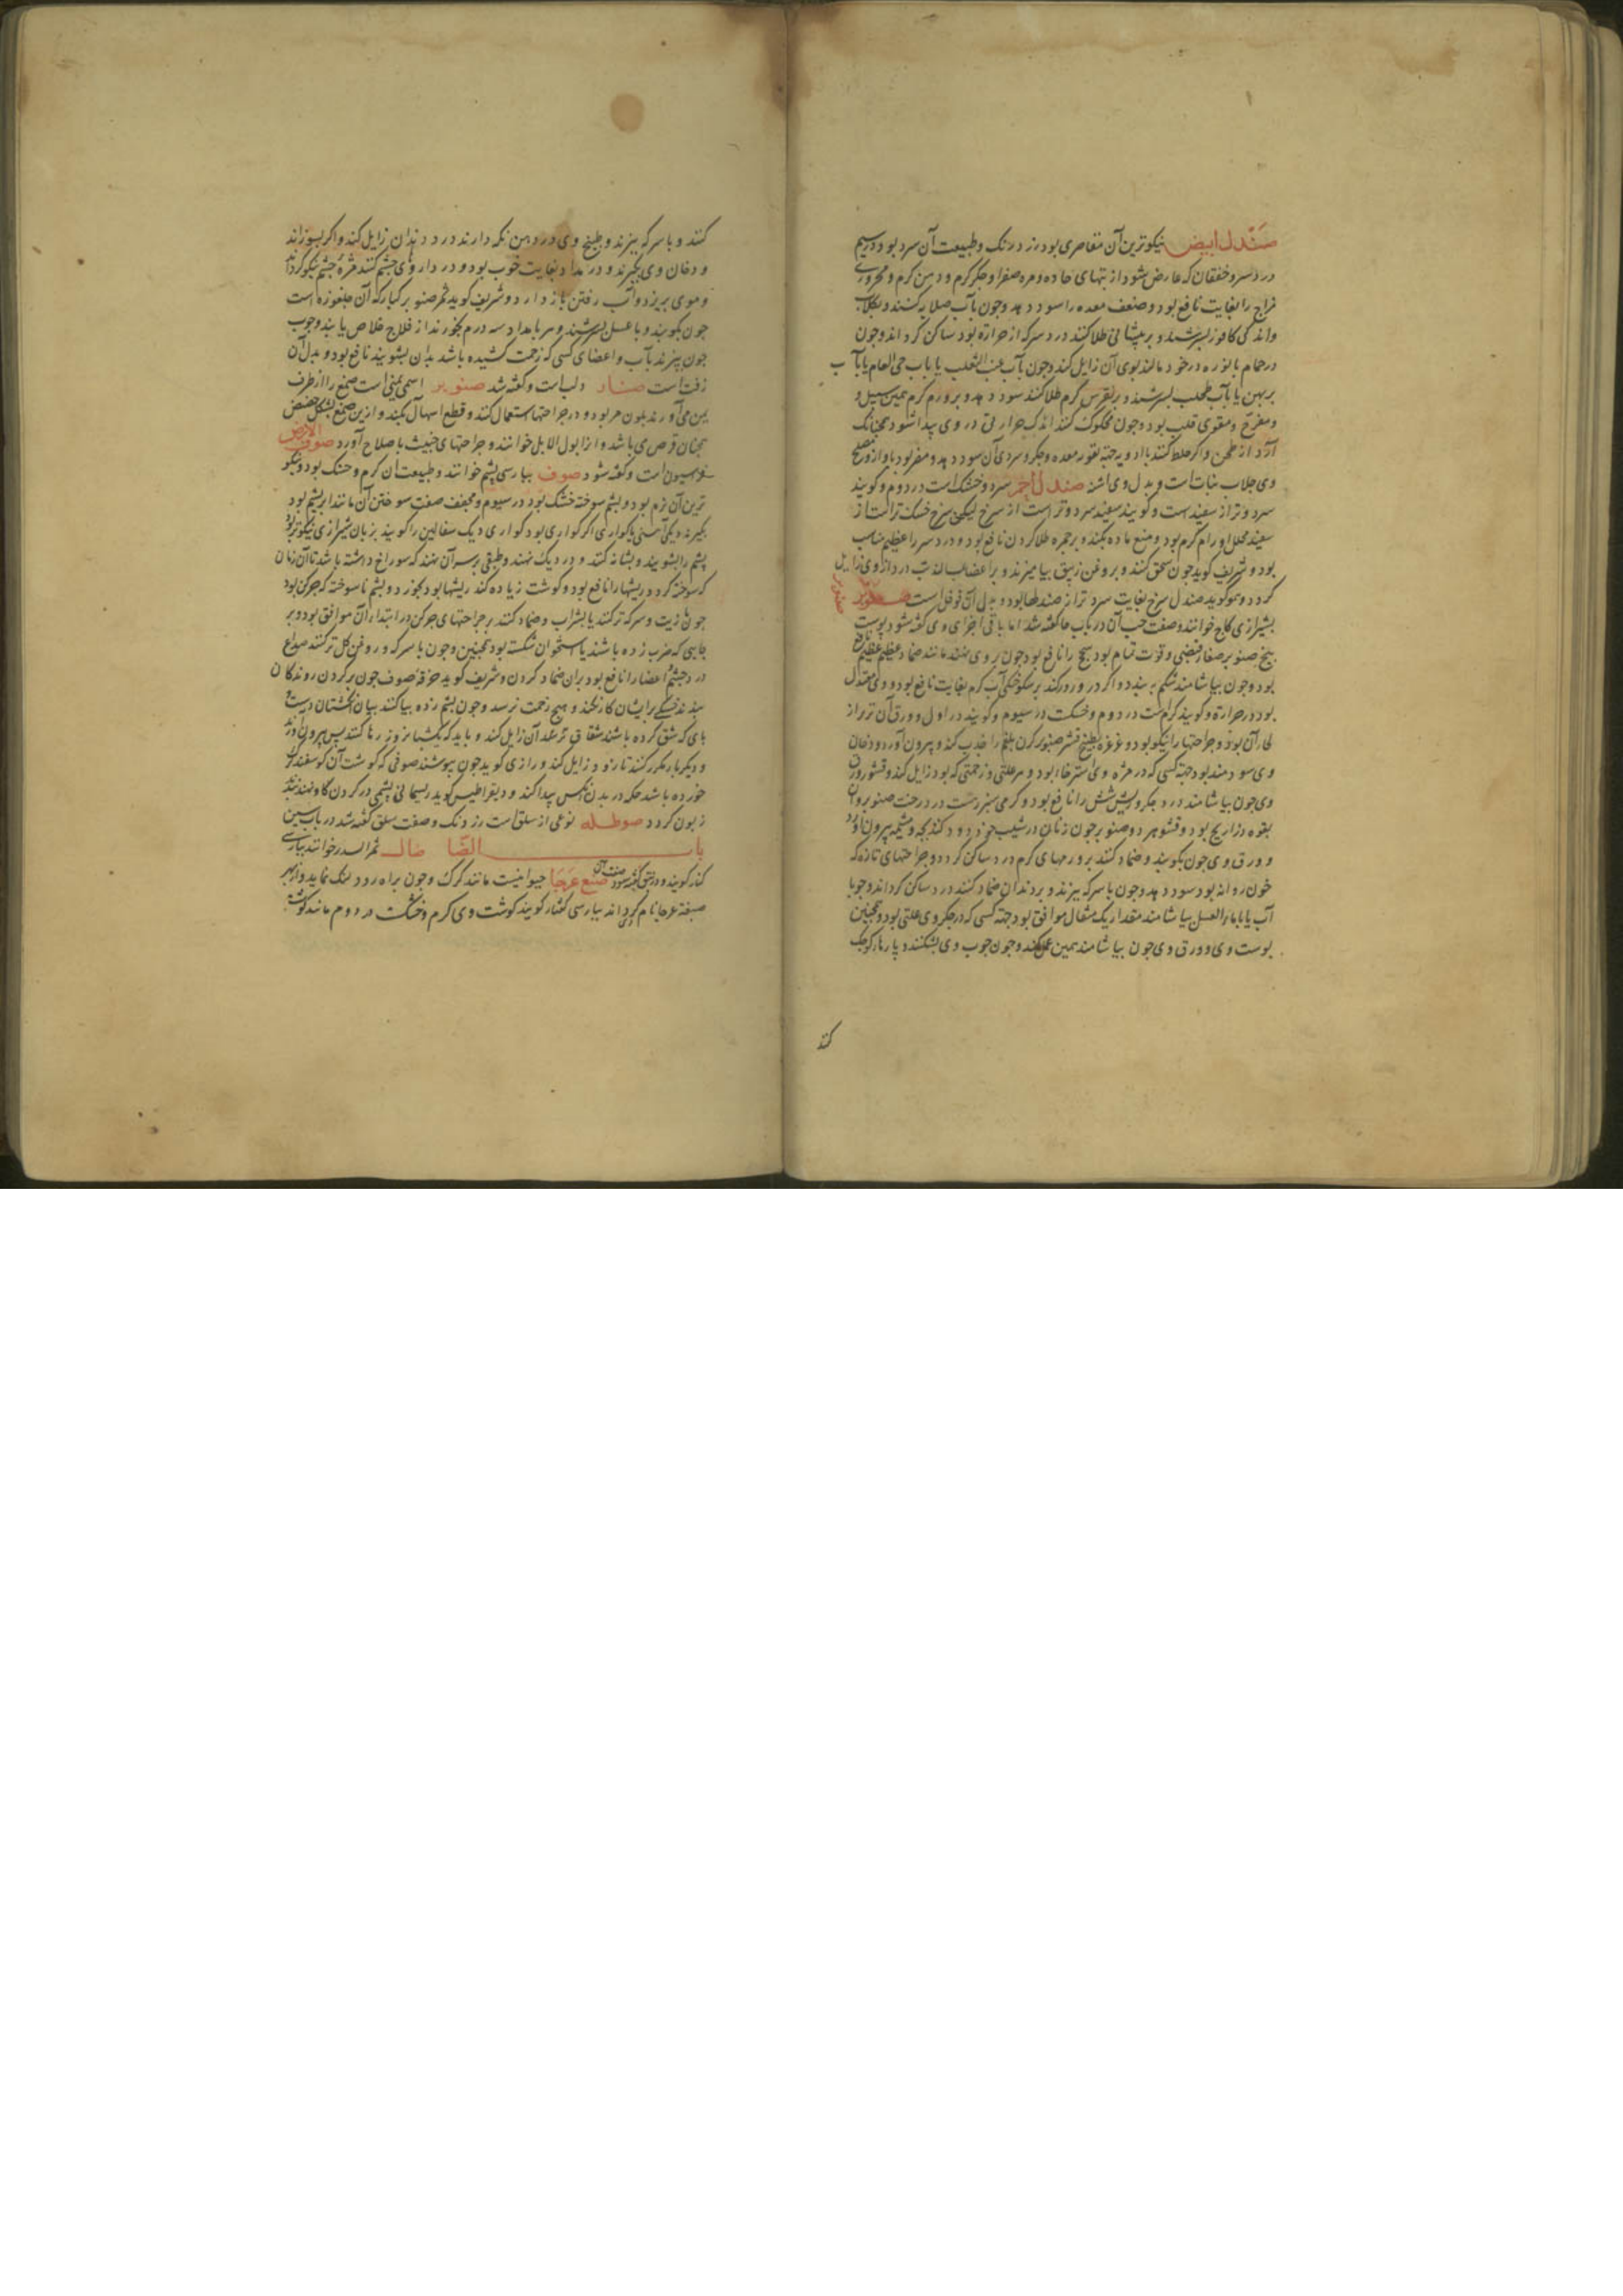 صندل ابیض نیکوترین آن مقاصری بود زرد رنک و طبیعت آن سرد بود در سیم
درد سر و خفقان که عارض شود از تبهای حاده و مره صفرا و جکر کرم و دهن کرم و محروری
مزاج را بغایت نافع بود و ضعف معده را سود دهد و جون بآب صلایه کنند و بکلاب
و اندکی کافور بسرشند و بر پیشانی طلا کنند درد سر که از حرارة بود ساکن کرداند و جون
در حمام با نوره در خود مالند بوی آن زایل کند و جون بآب عنب الثعلب یا بآب حی العالم یا بآب
یا بآب طحلب بسرشند و بر نقرس کرم طلا کنند سود دهد و بر ورم کرم همین سبیل و
و مفرح و مقوی قلب بود و جون محکوک کنند اندک حرارتی در وی پیدا شود همجنانک
آرد از طحن و اکر خلط کنند با ادویه جهة معده و جکر و سردی آن سود دهد و مضر بود بآواز و مصلح
وی جلاب نبات است و بدل وی اشنه صندل احمر سرد و خشک است در دوم و کویند
سرد و تر از سفید است و کویند سفید سرد و تر است از سرخ لیکن سرخ خشک تر است از
سفید محلل اورام کرم بود و منع ماده بکند و بر حمره طلا کردن نافع بود و درد سر را عظیم مناسب
بود و شریف کوید جون سحق کنند و بروغن زیبق بیامیزند و بر اعصاب درد از وی زایل
کردد و کوید صندل سرخ بغایت سرد تر از صندلها بود و بدل آن فوفل است صنوبر
بشیرازی کاج خوانند و صفت حب آن در باب حا کفته شد اما باقی اجزای وی کفته شود پوست
بیخ صنوبر صغار قبضی و قوت تمام بود سحج را نافع بود جون بر وی نهند مانند ضماد
بود و جون بیاشامند شکم ببندد و اکر ذرور کنند بر سوختکی آب کرم بغایت نافع بود
بود در حرارة و کویند کرم است در دوم و خشک در سیوم و کویند در اول و ورق آن تر از
آن بود و جراحتها را نیکو بود و غرغره بطبیخ قشر صنوبر کردن بلغم را جذب کند و بیرون آورد و دخان
وی سودمند بود جهة کسی که در مژه وی استرخا بود و هر علتی و زحمتی که بود زایل کند و قشور
وی جون بیاشامند درد جکر و ریش شش را نافع بود و کرمی سبز رست در درخت صنوبر و آن
بقوه ذراریح بود و قشر هر دو صنوبر جون زنان در شیب خود دود کنند بجه و مشیمه بیرون آورد
و ورق وی جون بکوبند و ضماد کنند بر ورمهای کرم درد ساکن کردد و جراحتهای تازه که
خون روانه بود سود دهد و جون با سرکه بپزند و بر دندان ضماد کنند درد ساکن کرداند و جون با
آب یا با ماء العسل بیاشامند مقدار یک مثقال موافق بود جهة کسی که در جکر وی علتی بود و همجنین
پوست وی و ورق وی جون بیاشامند همین عمل کند و جون جوب وی بشکنند و پارهای کوجک
کنند
کنند و با سرکه بپزند و طبیخ وی در دهن نکه دارند درد دندان زایل کند و اکر بسوزانند
و دخان وی بکیرند و در مداد بغایت خوب بود و در داروی جشم کنند مژهٔ جشم نیکو کرداند
و موی بریزد و آب رفتن باز دارد و شریف کوید ثمر صنوبر کبار که آن جلغوزه است
جون بکوبند و با عسل بسرشند و هر بامداد سه درم بخورند از فلاج خلاص یابند و جوب
جون بپزند بآب و اعضای کسی که زحمت کشیده باشد بدان بشویند نافع بود و بدل آن
زفت است صنار دلب است و کفته شد صنوبر اسمی یمنی است صمغ را از طرف
یمن می آورند بلون مر بود و در جراحتها استعمال کنند و قطع اسهال بکند و ازین صمغ بشکل
همجنان قرص می باشد و آنرا بول الابل خوانند و جراحتهای خبیث باصلاح آورد صوف الارض
است و کفته شود صوف بپارسی پشم خوانند و طبیعت آن کرم و خشک بود و نیکو
ترین آن نرم بود و پشم سوخته خشک بود در سیوم و مجفف صفت سوختن آن مانند ابریشم بود
بکیرند دیکی آهنین یا کواری اکر کواری بود کواری دیک سفالین را کویند بزبان شیرازی نیکوتر بود
پشم را بشویند و بشانه کنند و در دیک نهند و طبقی بر سر آن نهند که سوراخ داشته باشد تا آن زمان
که سوخته کردد ریشها را نافع بود و کوشت زیاده که در ریشها بود بخورد و پشم ناسوخته که جرکن بود
جون با زیت و سرکه تر کنند یا بشراب و ضماد کنند بر جراحتهای جرکن در ابتداء آن موافق بود و بر
جایی که ضرب زده باشند یا استخوان شکسته بود همجنین و جون با سرکه و روغن کل تر کنند صداع
و درد جشم و اعضا را نافع بود بدان ضماد کردن و شریف کوید خرقه صوف جون بر کردن روندکان
بندند خستکی برایشان کار نکند و هیج زحمت نرسد و جون پشم زده بیاکنند بمیان انکشتان دست و
پای که شق کرده باشند شقاق آن زایل کند و باید که یک شبانروز رها کنند پس بیرون آورند
و دیکر باره مکرر کنند تا زود زایل کند و رازی کوید جون بپوشند صوفی که کوشت آن کوسفند کرک
خورده باشد حکه در بدن آنکس پیدا کند و دیمقراطیس کوید ریسمانی پشمین در کردن کاو نهند
زبون کردد صوطله نوعی از سلق است زرد رنک و صفت سلق کفته شد در باب سین
باب الضاد ضال ثمر السدر خوانند بپارسی
کنار کویند و در نبق کفته شود صفت آن ضبع عرجا حیوانیست مانند کرک و جون براه رود لنک نماید و از بهر
ضبعة عرجا نام کرده اند بپارسی کفتار کویند کوشت وی کرم و خشکست در دوم مانند کوشت